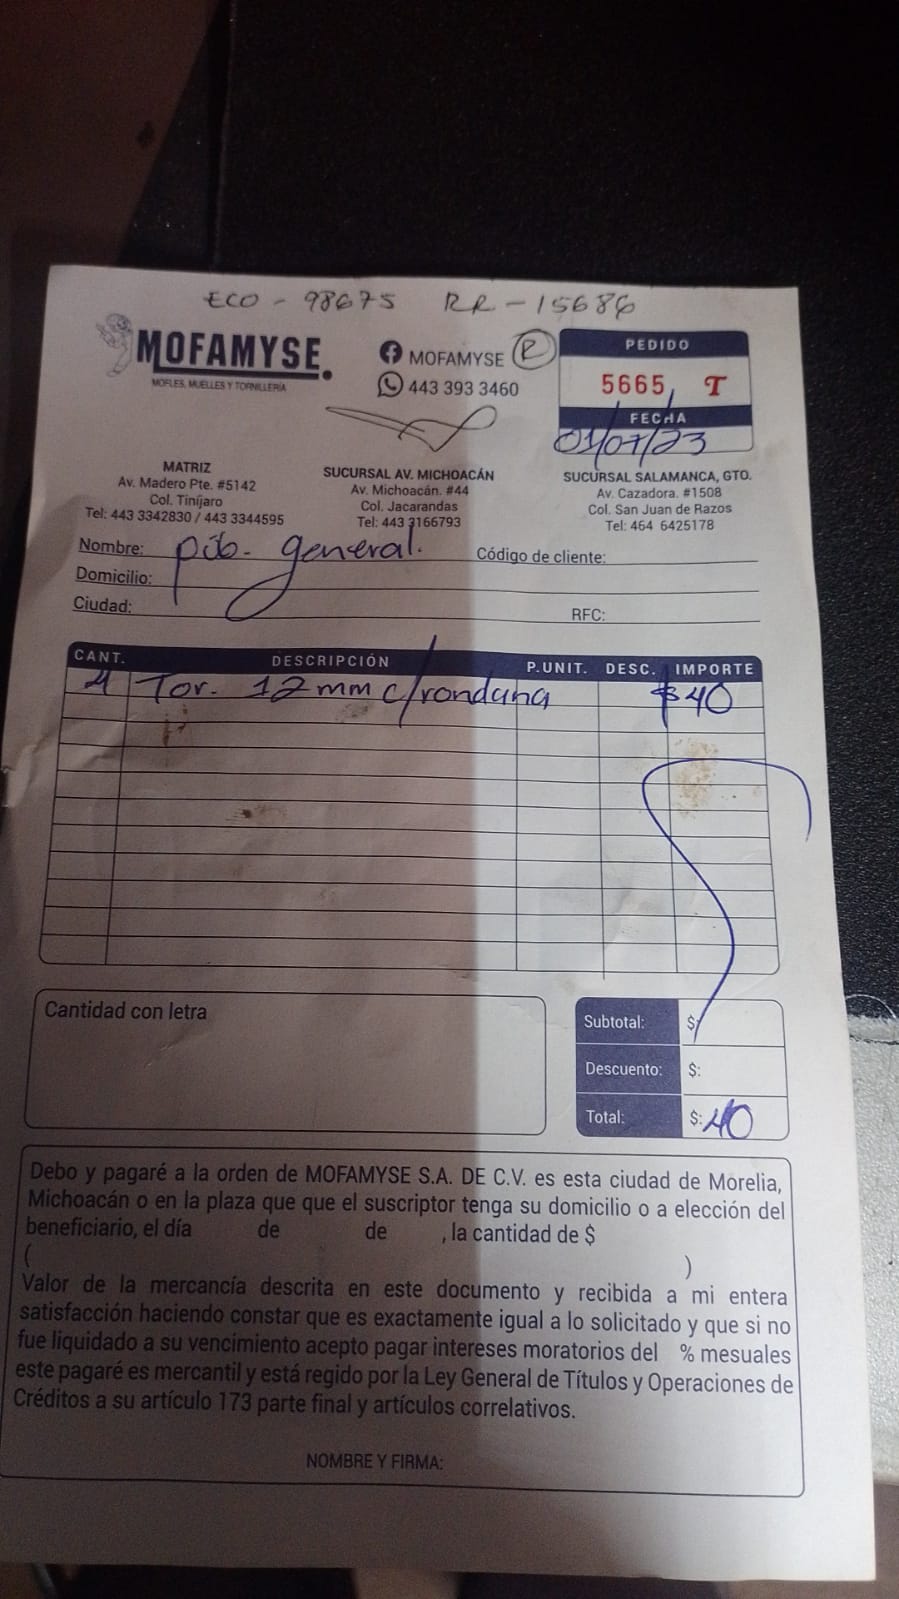 ECO - 98675 RR - 15686
MOFAMYSE.
MOFLES, MUELLES Y TORNILLERÍA
MOFAMYSE R
443 393 3460
PEDIDO
5665 T
FECHA
01/07/23
MATRIZ
Av. Madero Pte. #5142
Col. Tiníjaro
Tel: 443 3342830 / 443 3344595
SUCURSAL AV. MICHOACÁN
Av. Michoacán. #44
Col. Jacarandas
Tel: 443 3166793
SUCURSAL SALAMANCA, GTO.
Av. Cazadora. #1508
Col. San Juan de Razos
Tel: 464 6425178
Nombre: púb. general. Código de cliente:
Domicilio:
Ciudad: RFC:
CANT. DESCRIPCIÓN P.UNIT. DESC. IMPORTE
4 Tor. 12 mm c/rondana $40
Cantidad con letra
Subtotal: $:
Descuento: $:
Total: $: 40
Debo y pagaré a la orden de MOFAMYSE S.A. DE C.V. es esta ciudad de Morelia,
Michoacán o en la plaza que que el suscriptor tenga su domicilio o a elección del
beneficiario, el día de de , la cantidad de $
( )
Valor de la mercancía descrita en este documento y recibida a mi entera
satisfacción haciendo constar que es exactamente igual a lo solicitado y que si no
fue liquidado a su vencimiento acepto pagar intereses moratorios del % mesuales
este pagaré es mercantil y está regido por la Ley General de Títulos y Operaciones de
Créditos a su artículo 173 parte final y artículos correlativos.
NOMBRE Y FIRMA: